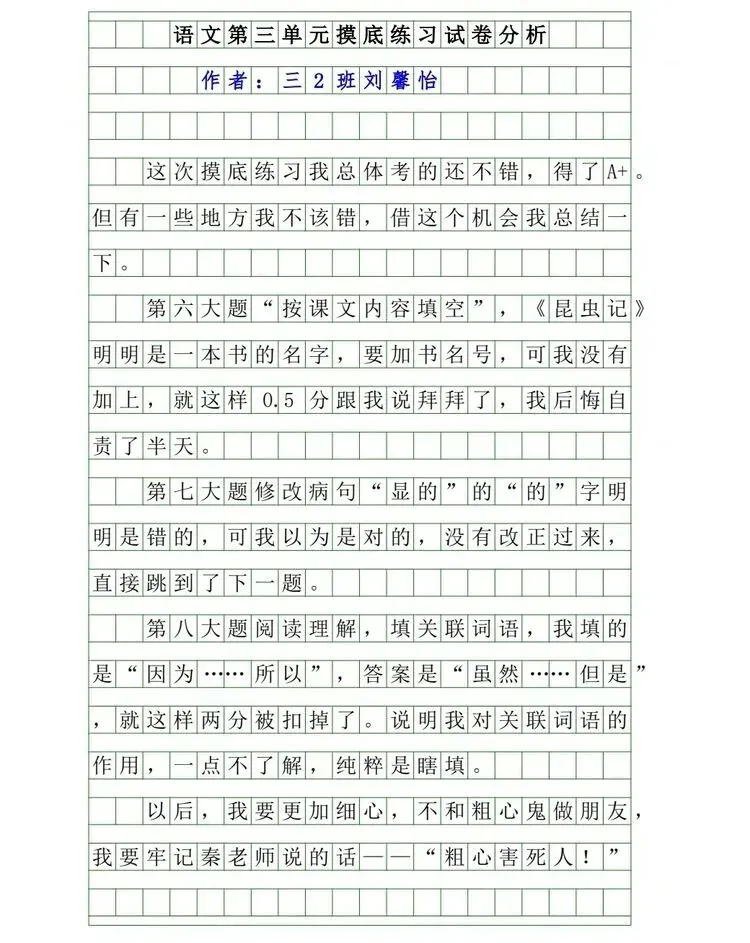 语文第三单元摸底练习试卷分析
作者：三2班刘馨怡
这次摸底练习我总体考的还不错，得了A+。
但有一些地方我不该错，借这个机会我总结一
下。
第六大题“按课文内容填空”，《昆虫记》
明明是一本书的名字，要加书名号，可我没有
加上，就这样0.5分跟我说拜拜了，我后悔自
责了半天。
第七大题修改病句“显的”的“的”字明
明是错的，可我以为是对的，没有改正过来，
直接跳到了下一题。
第八大题阅读理解，填关联词语，我填的
是“因为……所以”，答案是“虽然……但是”
，就这样两分被扣掉了。说明我对关联词语的
作用，一点不了解，纯粹是瞎填。
以后，我要更加细心，不和粗心鬼做朋友，
我要牢记秦老师说的话——“粗心害死人！”